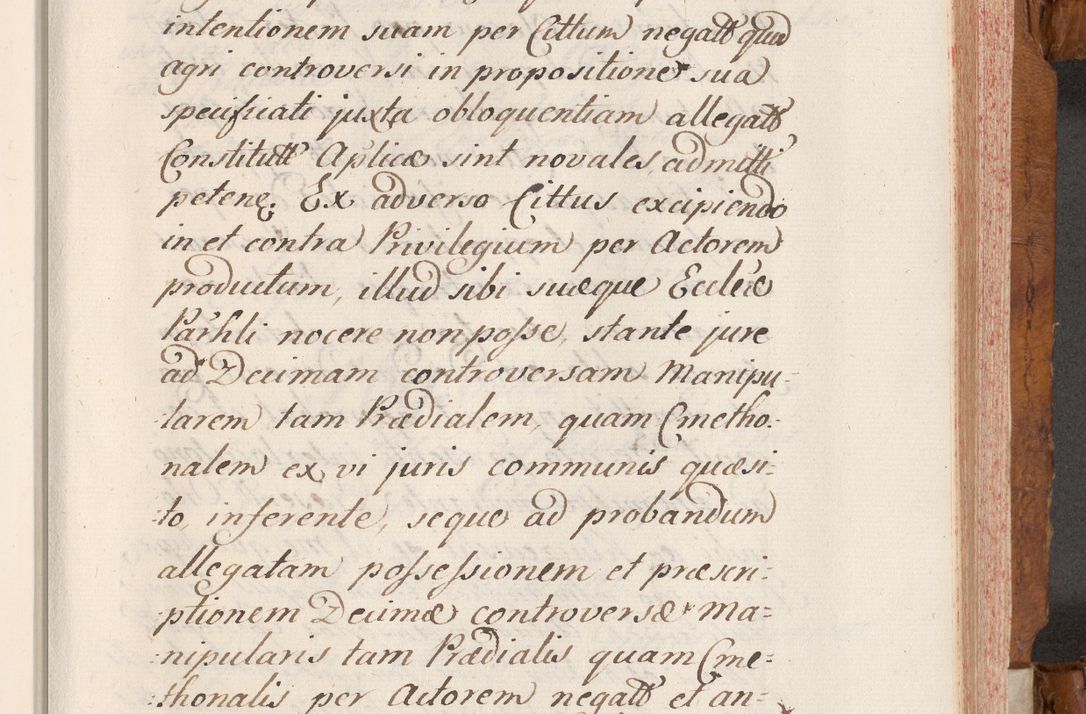 intentionem suam per Cittum negatt quod
agri controversi in propositione sua
specifficati juxta obloquentiam allegatt
Constitutt Aplicæ sint novales, admitti
petene. Ex adverso Cittus excipiendo
in et contra Privilegium per Actorem
productum, illud sibi suæque Eccleæ
Parhli nocere non posse, stante jure
ad Decimam controversam Manipu-
larem tam Prædialem, quam Cmetho-
nalem ex vi juris communis quæsi-
to, inferente, seque ad probandum
allegatam possessionem et præscri-
ptionem Decimæ controversæ Ma=
nipularis tam Prædialis quam Cme-
thonalis per Actorem negatt et an-